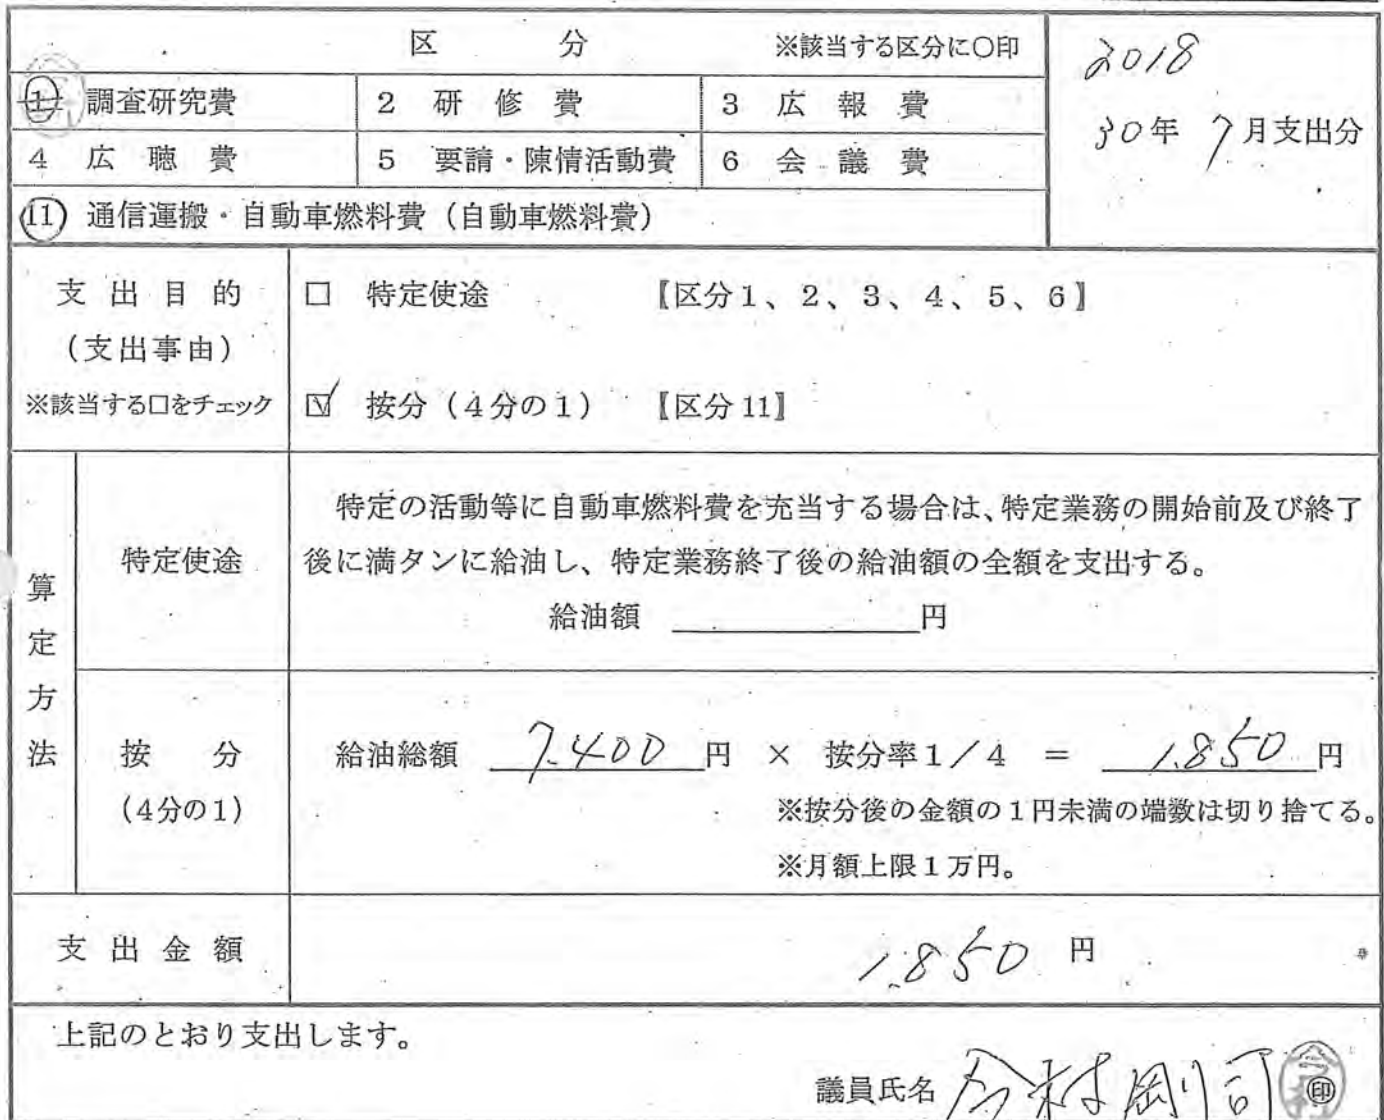 区　　　分　　※該当する区分に○印
2018
30年 7月支出分
① 調査研究費　2 研 修 費　3 広 報 費
4 広 聴 費　5 要請・陳情活動費　6 会 議 費
⑪ 通信運搬・自動車燃料費（自動車燃料費）
支 出 目 的
（支出事由）
※該当する口をチェック
□ 特定使途　【区分1、2、3、4、5、6】
☑ 按分（4分の1）　【区分11】
算定方法
特定使途
特定の活動等に自動車燃料費を充当する場合は、特定業務の開始前及び終了
後に満タンに給油し、特定業務終了後の給油額の全額を支出する。
給油額　　　　　円
按　　分
（4分の1）
給油総額 7.400 円 × 按分率1／4 ＝ 1.850 円
※按分後の金額の1円未満の端数は切り捨てる。
※月額上限1万円。
支 出 金 額　1.850 円
上記のとおり支出します。
議員氏名 今村剛司 ㊞